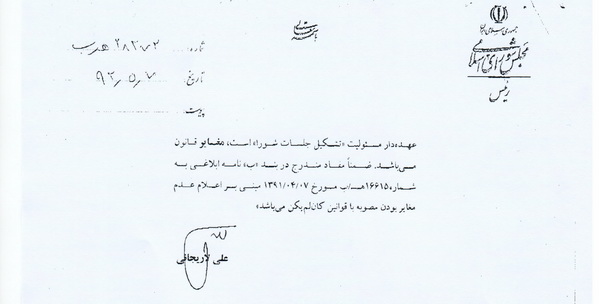 جمهوری اسلامی ایران
مجلس شورای اسلامی
رئیس
باسمه تعالی
شماره: ۲۸۲۷۳ هـ ب
تاریخ: ۹۲٫۵٫۷
پیوست:
عهده‌دار مسئولیت «تشکیل جلسات شورا» است، مغایر قانون
می‌باشد. ضمناً مفاد مندرج در بند «ب» نامه ابلاغی به
شماره ۱۶۶۱۵هـ/ب مورخ ۱۳۹۱/۰۴/۰۷ مبنی بر اعلام عدم
مغایر بودن مصوبه با قوانین کان‌لم‌یکن می‌باشد»
علی لاریجانی